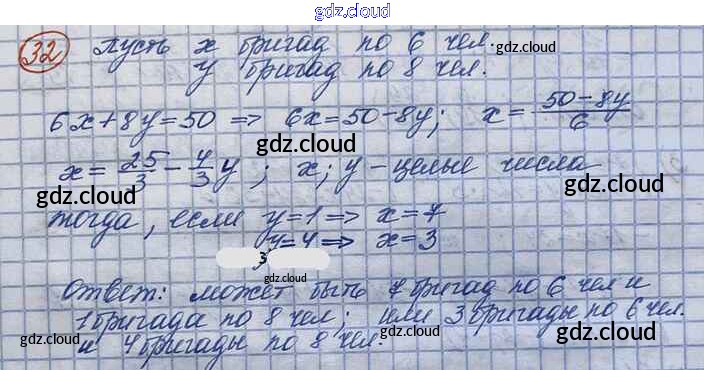 gdz.cloud
32 Пусть x бригад по 6 чел. gdz.cloud
gdz.cloud y бригад по 8 чел.
6x+8y=50 => 6x=50-8y; x= 50-8y / 6
gdz.cloud gdz.cloud
x= 25/3 - 4/3 y ; x; y - целые числа
gdz.cloud gdz.cloud
тогда, если y=1 => x=7
gdz.cloud y=4 => x=3 gdz.cloud
3
gdz.cloud
Ответ: может быть 7 бригад по 6 чел и
gdz.cloud gdz.cloud
1 бригада по 8 чел; или 3 бригады по 6 чел.
gdz.cloud gdz.cloud gdz.cloud
и 4 бригады по 8 чел.